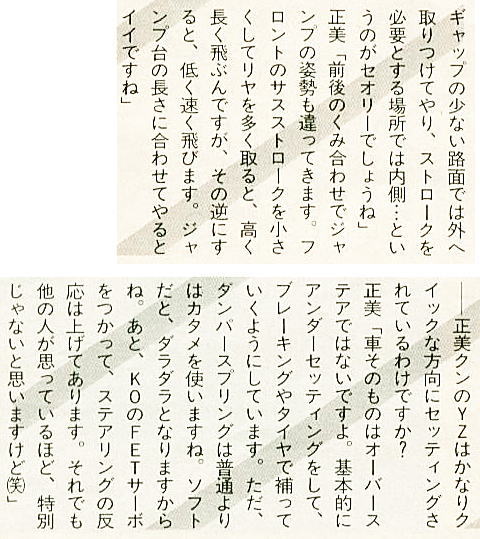 ギャップの少ない路面では外へ
取りつけてやり、ストロークを
必要とする場所では内側…とい
うのがセオリーでしょうね」
正美「前後のくみ合わせでジャ
ンプの姿勢も違ってきます。フ
ロントのサスストロークを小さ
くしてリヤを多く取ると、高く
長く飛ぶんですが、その逆にす
ると、低く速く飛びます。ジャ
ンプ台の長さに合わせてやると
イイですね」
――正美クンのYZはかなりク
イックな方向にセッティングさ
れているわけですか?
正美「車そのものはオーバース
テアではないですよ。基本的に
アンダーセッティングをして、
ブレーキングやタイヤで補って
いくようにしています。ただ、
ダンパースプリングは普通より
はカタメを使いますね。ソフト
だと、ダラダラとなりますから
ね。あと、KOのFETサーボ
をつかって、ステアリングの反
応は上げてあります。それでも
他の人が思っているほど、特別
じゃないと思いますけど㊤」